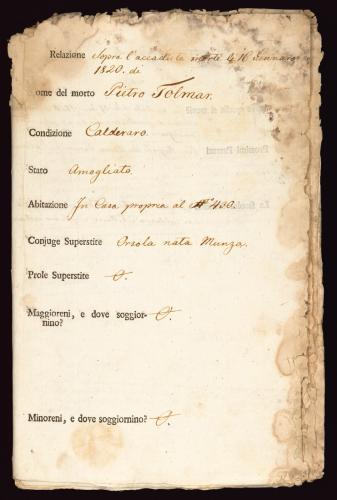 Relazione Sopra l'accaduta morte li 16 Gennaro
1820. di
ome del morto Pietro Tolmar.
Condizione Calderaro.
Stato Amogliato.
Abitazione In Casa propria al N° 430.
Conjuge Superstite Orsola nata Munza.
Prole Superstite
Maggioreni, e dove soggior-
nino?
Minoreni, e dove soggiornino?